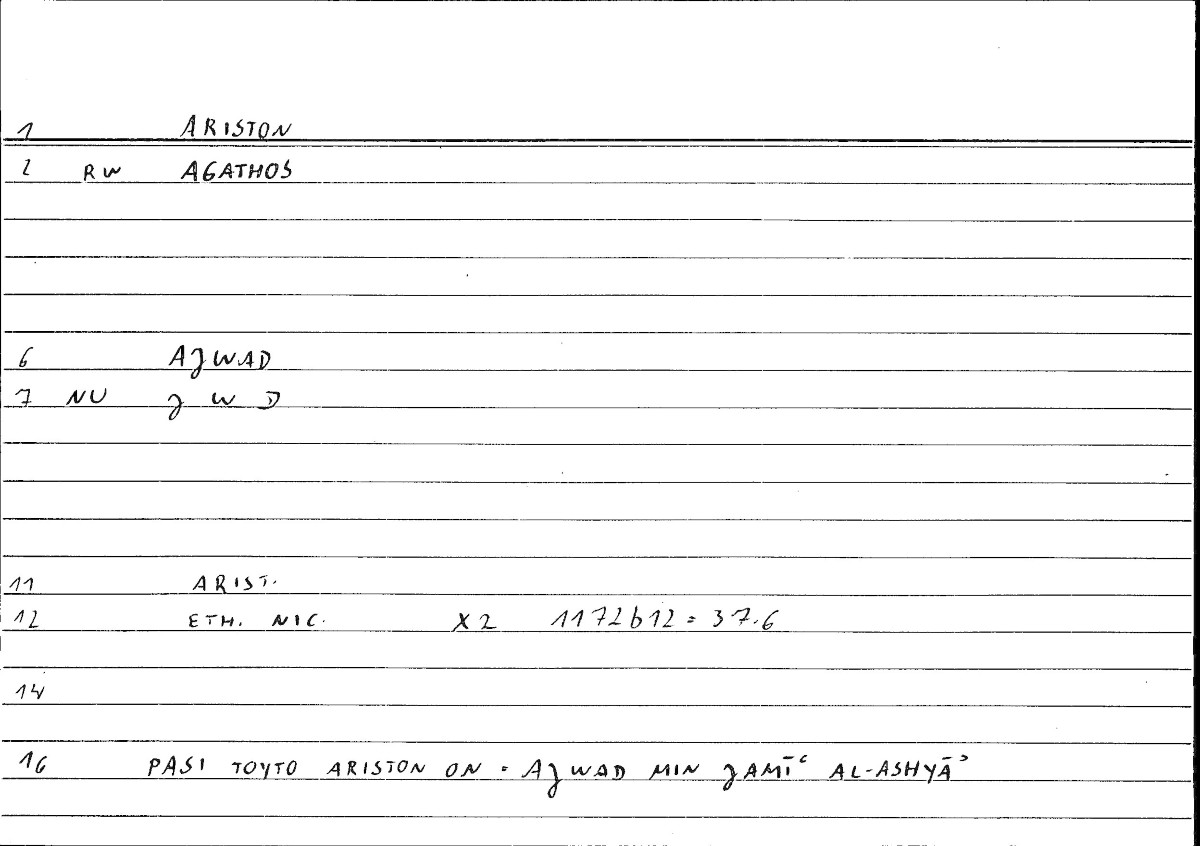 1 ARISTON
2 RW AGATHOS
6 AJWAD
7 NU J W D
11 ARIST.
12 ETH. NIC. X2 1172b12 = 37.6
14
16 PASI TOYTO ARISTON ON = AJWAD MIN JAMĪʿ AL-ASHYĀʾ